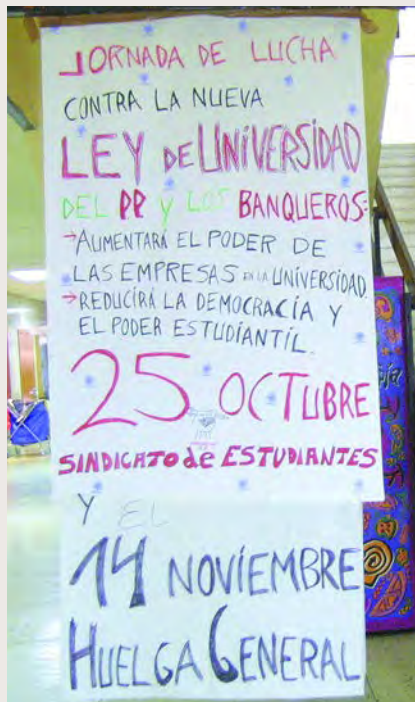 JORNADA DE LUCHA
CONTRA LA NUEVA
LEY DE UNIVERSIDAD
DEL PP Y LOS BANQUEROS:
→AUMENTARÁ EL PODER DE
LAS EMPRESAS EN LA UNIVERSIDAD.
→REDUCIRÁ LA DEMOCRACIA Y
EL PODER ESTUDIANTIL.
25 OCTUBRE
SINDICATO de ESTUDIANTES
Y EL
14 NOVIEMBRE
HUELGA GENERAL